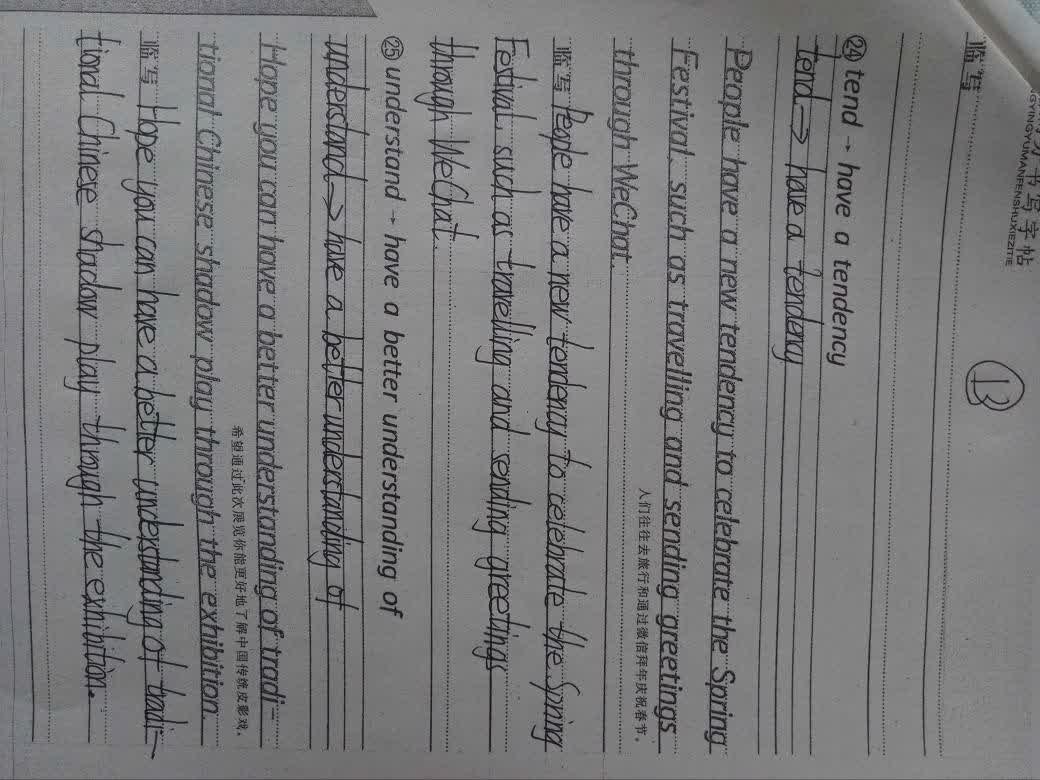 书写字帖
GYINGYUMANFENSHUXIEZITIE
临写
13
㉔ tend → have a tendency
tend → have a tendency
People have a new tendency to celebrate the Spring
Festival, such as travelling and sending greetings
through WeChat.
人们往往去旅行和通过微信拜年庆祝春节。
临写 People have a new tendency to celebrate the Spring
Festival, such as travelling and sending greetings
through WeChat.
㉕ understand → have a better understanding of
understand → have a better understanding of
Hope you can have a better understanding of tradi-
tional Chinese shadow play through the exhibition.
希望通过此次展览你能更好地了解中国传统皮影戏。
临写 Hope you can have a better understanding of tradi-
tional Chinese shadow play through the exhibition.